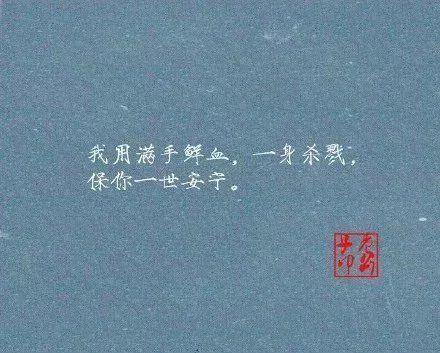 我用满手鲜血，一身杀戮，
保你一世安宁。